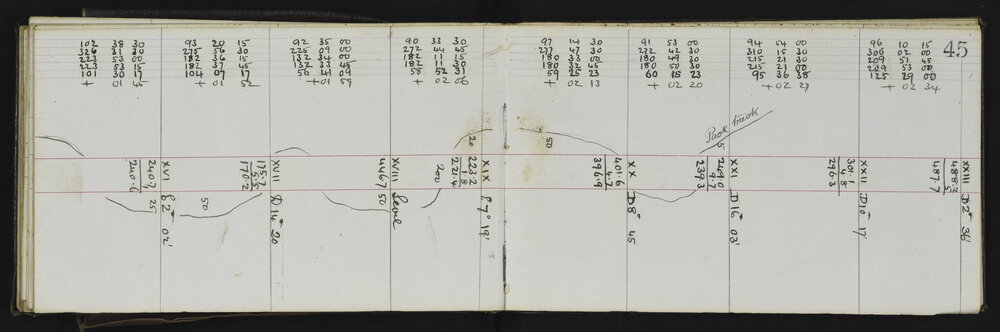 45
102 38 30
326 31 30
223 53 00
223 53 15
101 30 17
+ 01 45
93 20 15
275 56 30
182 36 15
182 37 45
104 07 17
+ 01 52
92 35 00
225 09 00
132 34 00
132 33 45
56 41 09
+01 59
90 33 30
272 44 45
182 11 15
182 11 30
58 52 31
+ 02 06
97 14 30
277 47 30
180 33 00
180 32 45
59 25 23
+ 02 13
91 53 00
272 42 30
180 49 30
180 50 30
60 15 23
+ 02 20
94 54 00
310 15 30
215 21 30
215 21 00
95 36 38
+02 27
96 10 15
306 02 00
209 51 45
209 53 00
125 29 00
+ 02 34
Pack track
5
20
50
XVI
240.7
240.6
2° 02'
25
50
XVII
170.2
D 14° 20
XVIII
446.7
50
Level
200
XIX
223.2
1.8
221.4
7° 19'
XX
401.6
4.7
396.9
D 8° 45
XXI
249.0
9.7
239.3
D 16° 03'
XXII
301.1
4.8
296.3
D 10° 17'
XXIII
488.2
.5
487.7
D 2° 36'